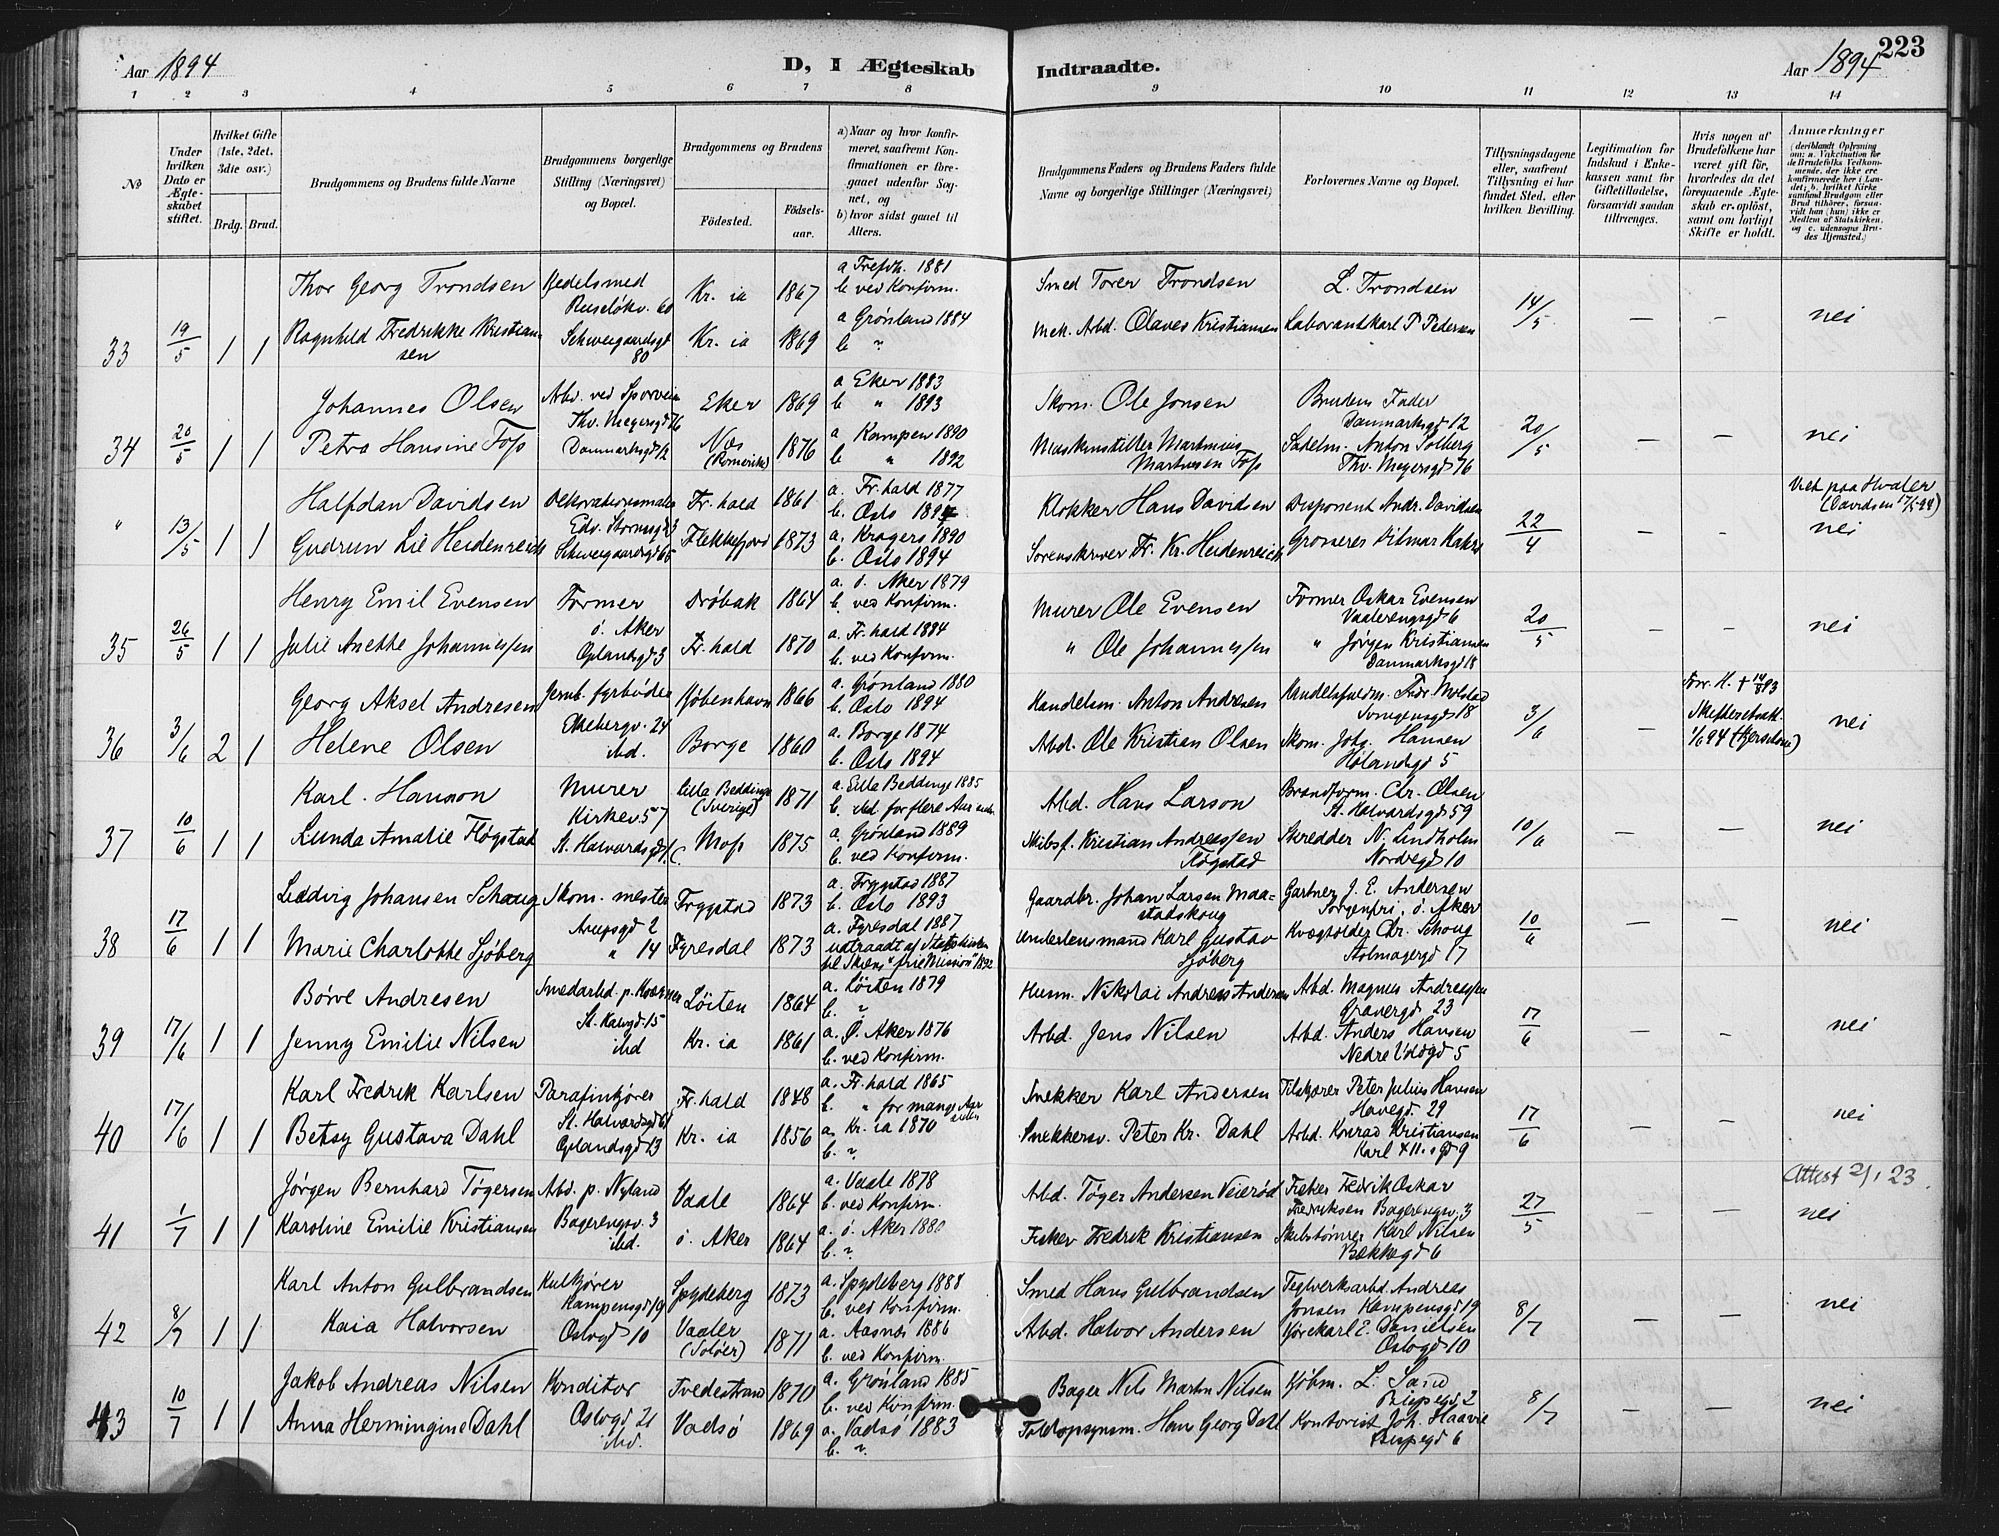 Aar 1894
D, I Ægteskab
Indtraadte.
Aar 1894
223
1 2 3 4 5 6 7 8 9 10 11 12 13 14
No
Under hvilken Dato er Ægteskabet stiftet.
Hvilket Gifte (1ste, 2det, 3die osv.)
Brdg. Brud.
Brudgommens og Brudens fulde Navne
Brudgommens borgerlige Stilling (Næringsvei) og Bopæl.
Brudgommens og Brudens
Fødested.
Fødselsaar.
a) Naar og hvor konfirmeret, saafremt Konfirmationen er foregaaet udenfor Sognet, og
b) hvor sidst gaaet til Alters.
Brudgommens Faders og Brudens Faders fulde Navne og borgerlige Stillinger (Næringsvei)
Forlovernes Navne og Bopæl.
Tillysningsdagene eller, saafremt Tillysning ei har fundet Sted, efter hvilken Bevilling.
Legitimation for Indskud i Enkekassen samt for Giftetilladelse, forsaavidt saadan tiltrænges.
Hvis nogen af Brudefolkene har været gift før, hvorledes da det foregaaende Ægteskab er opløst, samt om lovligt Skifte er holdt.
Anmærkninger (deriblandt Oplysning om: a. Vakcination for de Brudefolks Vedkommende, der ikke ere konfirmerede her i Landet; b. hvilket Kirkesamfund Brudgom eller Brud tilhører, forsaavidt han (hun) ikke er Medlem af Statskirken, og c. udensogns Brudes Hjemsted.)
33 19/5 1 1
Thor Georg Trondsen Kedelsmed Ruseløkv. 60 Kr. ia 1867 a Trefdh. 1881 b ved Konfirm. Smed Torer Trondsen L. Trondsen 14/5 — — nei
Ragnhild Fredrikke Kristiansen Schweigaardsgd 80 Kr. ia 1869 a Grønland 1884 b " Mek. Arbd. Olaves Kristiansen Laborantkarl P Pedersen
34 20/5 1 1
Johannes Olsen Abd. ved Sporvein Thv. Meyersgd 76 Eker 1869 a Eker 1883 b " 1893 Skom. Ole Jonsen Brudens Fader Danmarksgd 12 20/5 — — nei
Petra Hansine Foss Danmarksgd 12 Næs (Romerike) 1876 a Kampen 1890 b " 1892 Maskinstiller Martinius Martinsen Foss Sadelm. Anton Solberg Thv. Meyersgd 76
" 13/5 1 1
Halfdan Davidsen Dekorationsmaler Edv. Stormsgd 3 Fr. hald 1861 a. Fr. hald 1877 b. Oslo 1894 Klokker Hans Davidsen Disponent Andr. Davidsen 22/4 — — Viet paa Hvaler (Davidsen 17/5 94) nei
Gudrun Lie Heidenreich Schweigaardsgd 65 Flekkefjord 1873 a. Kragerø 1890 b. Oslo 1894 Sorenskriver Fr. Kr. Heidenreich Grosserer Ditmar Kahrs
35 26/5 1 1
Henry Emil Evensen Former ø. Aker Drøbak 1864 a. ø. Aker 1879 b. ved Konfirm. Murer Ole Evensen Former Oskar Evensen Vaalerengsgd 6 20/5 — — nei
Julie Anette Johannessen Oplandsgd 3 Fr. hald 1870 a. Fr. hald 1884 b. ved Konfirm. " Ole Johannessen " Jørgen Kristiansen Danmarksgd 18
36 3/6 2 1
Georg Aksel Andresen Jernb. fyrbøder Ekebergv. 24 Kjøbenhavn 1866 a. Grønland 1880 b. Oslo 1894 Handelsm. Anton Andresen Handelsfuldm. Fredr. Molstad Svingensgd 18 3/6 — Forr. H. + 14/3 83 Skifteretsatt. 1/6 94 (Kjerschow) nei
Helene Olsen ibd. Borge 1860 a. Borge 1874 b. Oslo 1894 Abd. Ole Kristian Olsen Skom. Johs. Hansen Hølandsgd 5
37 10/6 1 1
Karl Hanson Murer Kirkev. 57 Lilla Beddinge (Sverige) 1871 a. Lilla Beddinge 1885 b. ibd. for flere Aar siden Abd. Hans Larson Brandform. Chr. Olsen St. Halvardsgd 59 10/6 — — nei
Lunda Amalie Fløgstad St. Halvardsgd Moss 1875 a. Grønland 1889 b. ved Konfirm. Skibsf. Kristian Andreassen Fløgstad Skredder N. Lindholm Nordregd 10
38 17/6 1 1
Ludvig Johansen Schaug Skom. mester Arupsgd 2 Trygstad 1873 a. Trygstad 1887 b. Oslo 1893 Gaardbr. Johan Larsen Maastadskoug Gartner J. E. Andersen Sorgenfri, ø. Aker 10/6 — — nei
Marie Charlotte Sjøberg " 14 Fyresdal 1873 a. Fyresdal 1887 udtraadt af Statskirken til Skiens "frie Mission" 1892 Underlensmand Karl Gustav Sjøberg Kvægholder Chr. Schoug Stolmagergd 17
39 17/6 1 1
Børve Andresen Smedarbd. p. Kværner St. Halvgd. 15 Løiten 1864 a. Løiten 1879 b. " Husm. Nikolai Andreas Andersen Abd. Magnus Andreassen Gravergd 23 17/6 — — nei
Jenny Emilie Nilsen ibd Kr. ia 1861 a. Ø. Aker 1876 b. ved Konfirm. Arbd. Jens Nilsen Abd. Anders Hansen Nedre Voldgd 5
40 17/6 1 1
Karl Fredrik Karlsen Parafinkjører St. Halvardsgd Fr. hald 1848 a. Fr. hald 1865 b. " for mange Aar siden Snekker Karl Andersen Tilskjærer Peter Julius Hansen Havegd. 29 17/6 — — nei
Betsy Gustava Dahl Oplandsgd 13 Kr. ia 1856 a. Kr. ia 1870 b. ". Snekkersv. Peter Kr. Dahl Arbd. Konrad Kristiansen Karl XII.s gd 9
41 1/7 1 1
Jørgen Bernhard Tøgersen Abd. p. Nyland Bagerengsv. 3 Vaale 1864 a. Vaale 1878 b. ved Konfirm. Abd. Tøger Andersen Veierød Fisker Fredrik Oskar Fredriksen Bagerengsv. 3 27/5 — — Attest 2/1 23. nei
Karoline Emilie Kristiansen ibd. ø. Aker 1864 a. ø. Aker 1880 b. ". Fisker Fredrik Kristiansen Skibstømrer Karl Nilsen Bækkegd 6
42 8/7 1 1
Karl Anton Gulbrandsen Kulkjører Kampensgd 19 Spydeberg 1873 a. Spydeberg 1888 b. ved Konfirm. Smed Hans Gulbrandsen Teglverksarbd. Andreas Jonsen Kampensgd 19 8/7 — — nei
Kaia Halvorsen Oslogd 10 Vaaler (Soløer) 1871 a. Aasnes 1886 b. ved Konfirm. Abd. Halvor Andersen Kjørekarl E. Danielsen Oslogd 10
43 10/7 1 1
Jakob Andreas Nilsen Konditor Oslogd 21 Tvedestrand 1870 a. Grønland 1885 b. ved Konfirm. Bager Nils Martin Nilsen Kjøbm. L. Sand Bispegd 2 8/7 — — nei
Anna Hermingine Dahl ibd. Vadsø 1869 a. Vadsø 1883 b. ". Toldopsynsm. Hans Georg Dahl Kontorist Joh. Haavie Bispegd 6